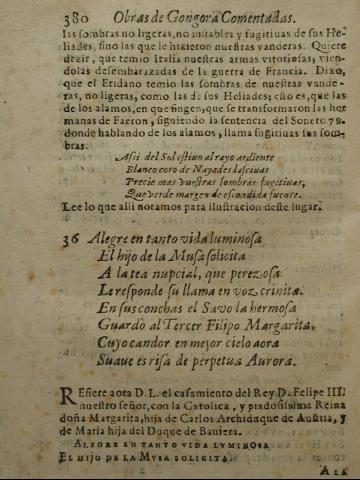 380 Obras de Gongora Comentadas.
las sombras no ligeras, no instables y fugitivas de sus He-
liades, sino las que le hizieron nuestras vanderas. Quiere
dezir, que temio Italia nuestras armas vitoriosas, vien-
dolas desembarazadas de la guerra de Francia. Dixo,
que el Eridano temio las sombras de nuestras vande-
ras, no ligeras, como las de sus Heliades; esto es, que las
de los alamos, en que fingen, que se transformaron las her
manas de Faeton, siguiendo la sentencia del Soneto 79.
donde hablando de los alamos, llama fugitivas sus som-
bras.
Assi del Sol estiuo al rayo ardiente
Blanco coro de Nayades lasciuas
Precie mas vuestras sombras fugitiuas,
Que verde margen de escondida fuente.
Lee lo que alli notamos para ilustracion deste lugar.
36 Alegre en tanto vida luminosa
El hijo de la Musa solicita
A la tea nupcial, que perezosa
Le responde su llama en voz crinita.
En sus conchas el Savo la hermosa
Guardò al Tercer Filipo Margarita,
Cuyo candor en mejor cielo aora
Suaue es risa de perpetua Aurora.
REfiere aora D. L. el casamiento del Rey D. Felipe III.
nuestro señor, con la Catolica, y piadosissima Reina
doña Margarita, hija de Carlos Archiduque de Austria, y
de Maria hija del Duque de Baviera.
ALEGRE EN TANTO VIDA LVMINOSA
EL HIJO DE LA MVSA SOLICITA
A LA